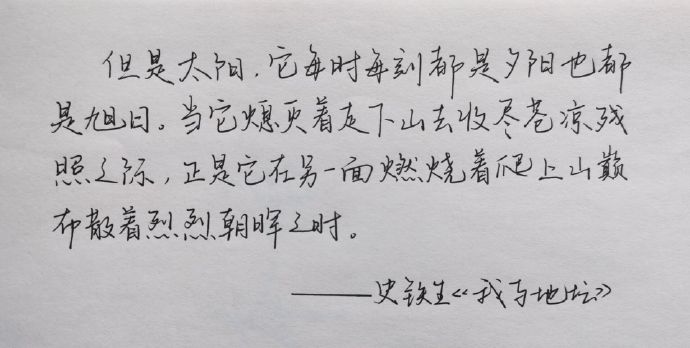 但是太阳，它每时每刻都是夕阳也都
是旭日。当它熄灭着走下山去收尽苍凉残
照之际，正是它在另一面燃烧着爬上山巅
布散着烈烈朝晖之时。
——史铁生《我与地坛》